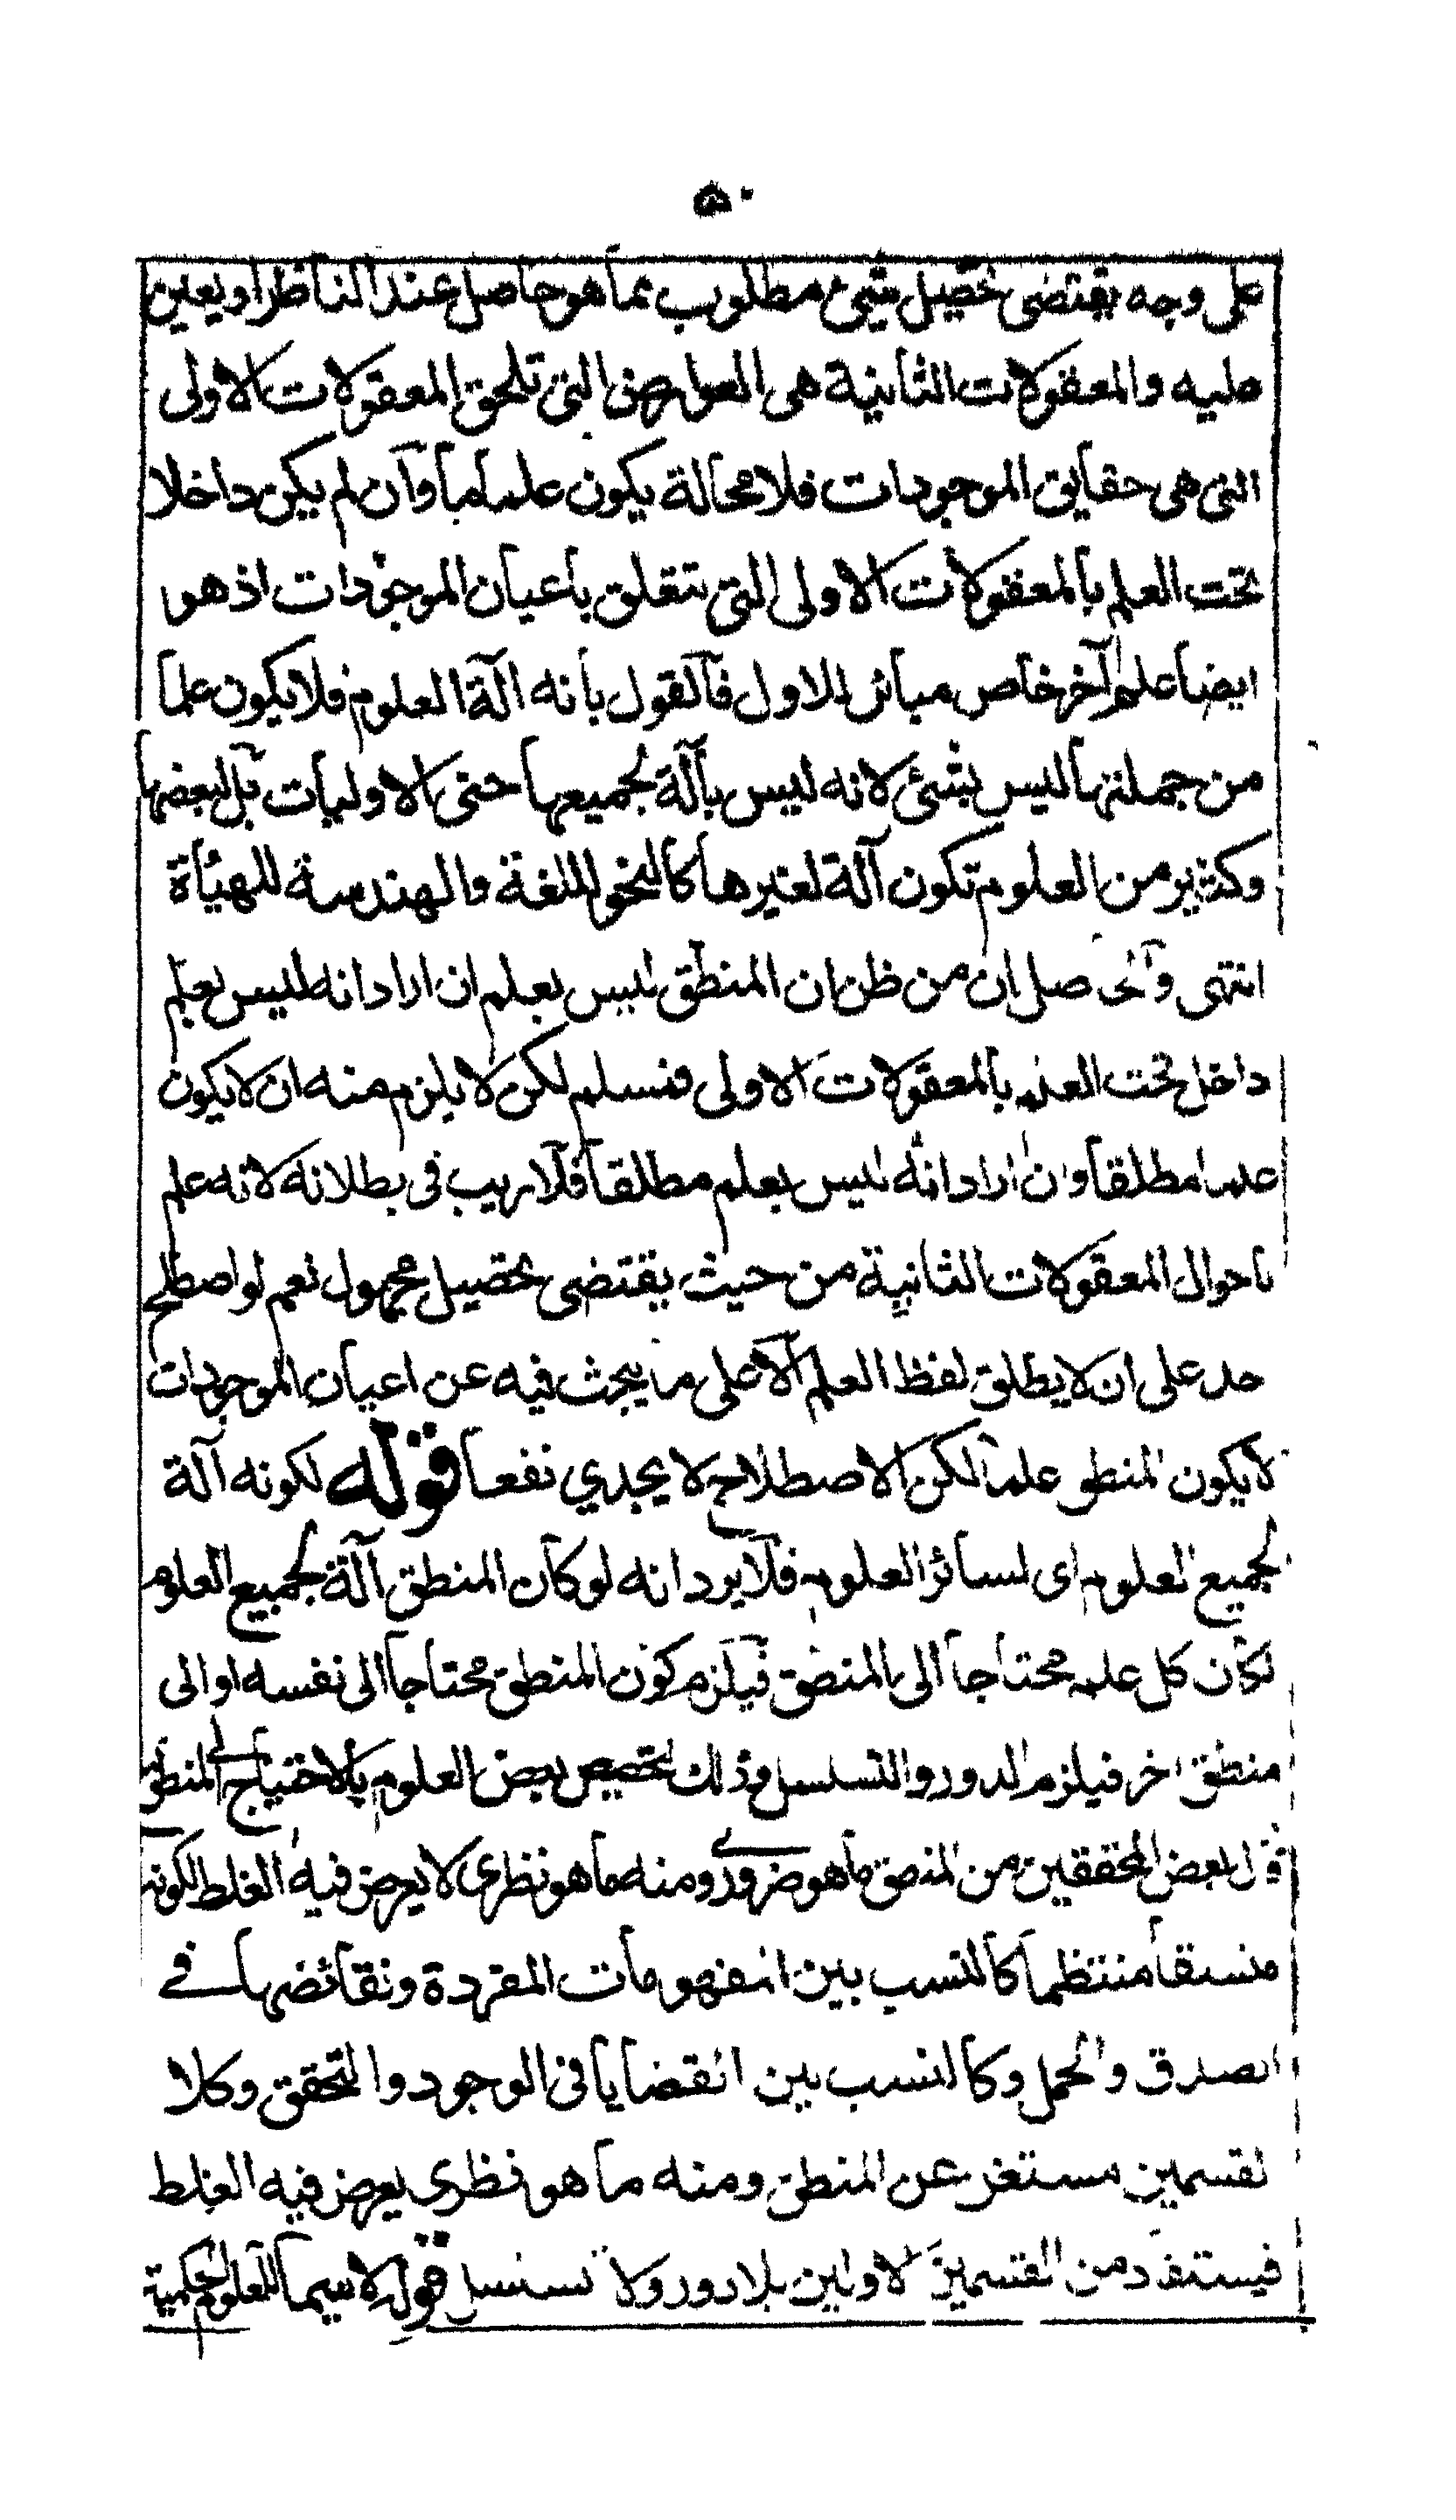 ٥٠
على وجه يقتضى تحصيل شيئ مطلوب بما هو حاصل عند الناظر او يعين
عليه والمعقولات الثانية هى العوارض التى تلحق المعقولات الاولى
التى هى حقايق الموجودات فلا محالة يكون علما ما وان لم يكن داخلا
تحت العلم بالمعقولات الاولى التى تتعلق باعيان الموجودات اذ هو
ايضا علم آخر خاص مبائن للاول فالقول بانه آلة العلوم فلا يكون علما
من جملتها ليس بشئ لانه ليس بآلة لجميعها حتى الاوليات بل لبعضها
وكثير من العلوم تكون آلة لغيرها كالنحو للغة والهندسة للهيأة
انتهى والحاصل ان من ظن ان المنطق ليس بعلم ان اراد انه ليس بعلم
داخل تحت العلم بالمعقولات الاولى فنسلم لكن لا يلزم منه ان لا يكون
علما مطلقا وان اراد انه ليس بعلم مطلقا فلا ريب فى بطلانه لانه علم
باحوال المعقولات الثانية من حيث يقتضى تحصيل مجهول نعم لو اصطلح
احد على ان لا يطلق لفظ العلم الا على ما يبحث فيه عن اعيان الموجودات
لا يكون المنطق علما لكن الاصطلاح لا يجدي نفعا قوله لكونه آلة
لجميع العلوم اى لسائر العلوم فلا يرد انه لو كان المنطق آلة لجميع العلوم
لكان كل علم محتاجا الى المنطق فيلزم كون المنطق محتاجا الى نفسه او الى
منطق اخر فيلزم الدور والتسلسل وذلك لتخصيص بعض العلوم بالاحتياج الى المنطق
قال بعض المحققين من المنطق ما هو ضرورى ومنه ما هو نظرى لا يعرض فيه الغلط لكونه
منسقا منتظما كالنسب بين المفهومات المفردة ونقائضها فى
الصدق والحمل وكالنسب بين القضايا فى الوجود والتحقق وكلا
القسمين مستغن عن المنطق ومنه ما هو نظرى يعرض فيه الغلط
فيستفاد من القسمين الاولين بلا دور ولا تسلسل قوله لا سيما العلوم الحكمية